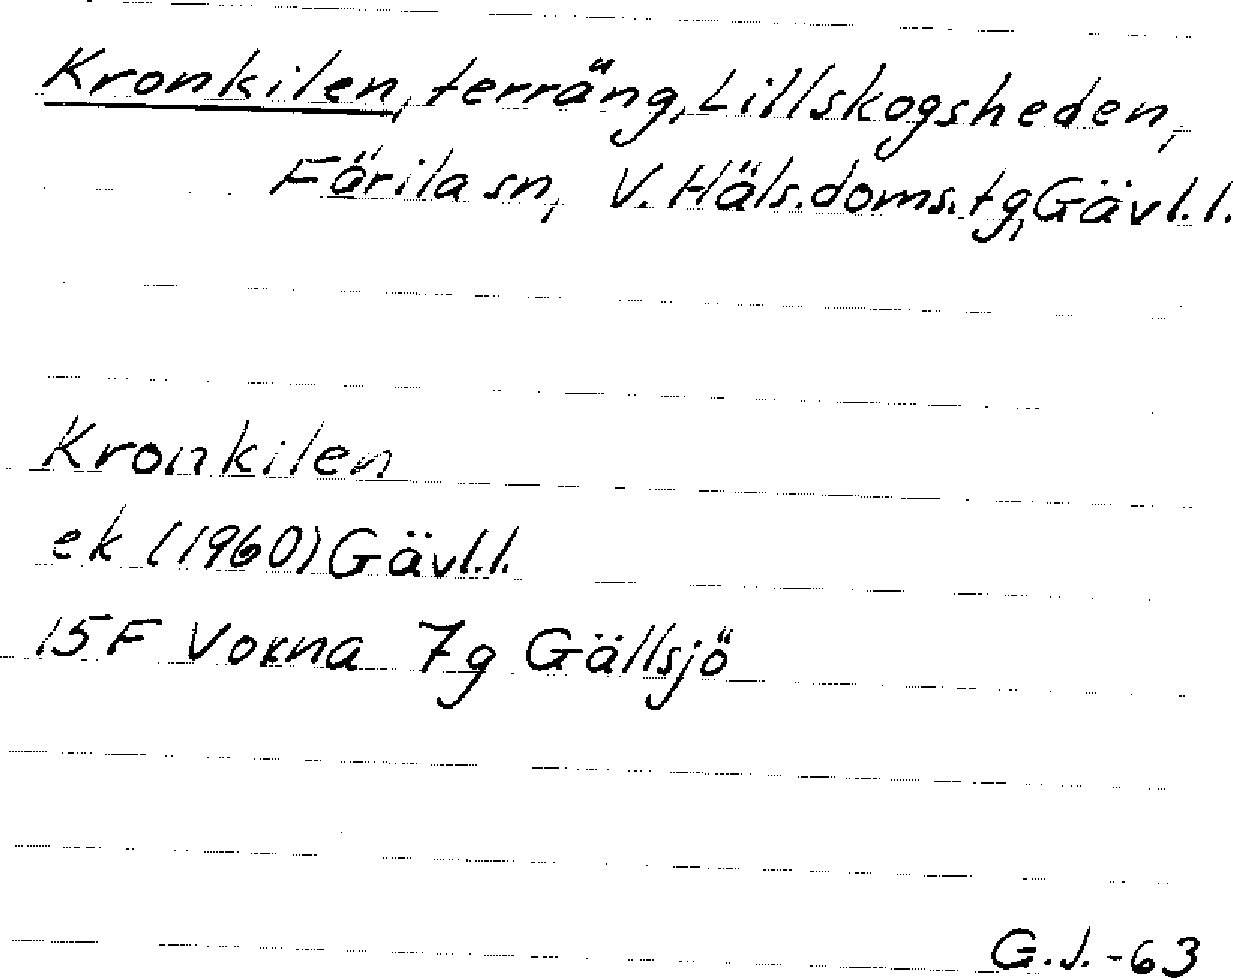 Kronkilen, terräng, Lillskogsheden,
Färila sn, V. Häls. doms. tg, Gävl. l.
Kronkilen
ek (1960) Gävl. l.
15F Voxna 7g Gällsjö
G.J. -63